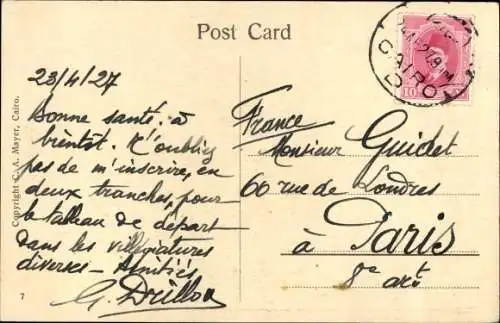 Post Card
23/4/27
Bonne santé. à
bientôt. N'oubliez
pas de m'inscrire, en
deux tranches, pour
le tableau de départ
dans les villégiatures
diverses - Amitiés
G. Drillon
France
Monsieur Guidet
60 rue de Londres
à Paris
8e art
CAIRO
10
Copyright C. A. Mayer, Cairo.
7